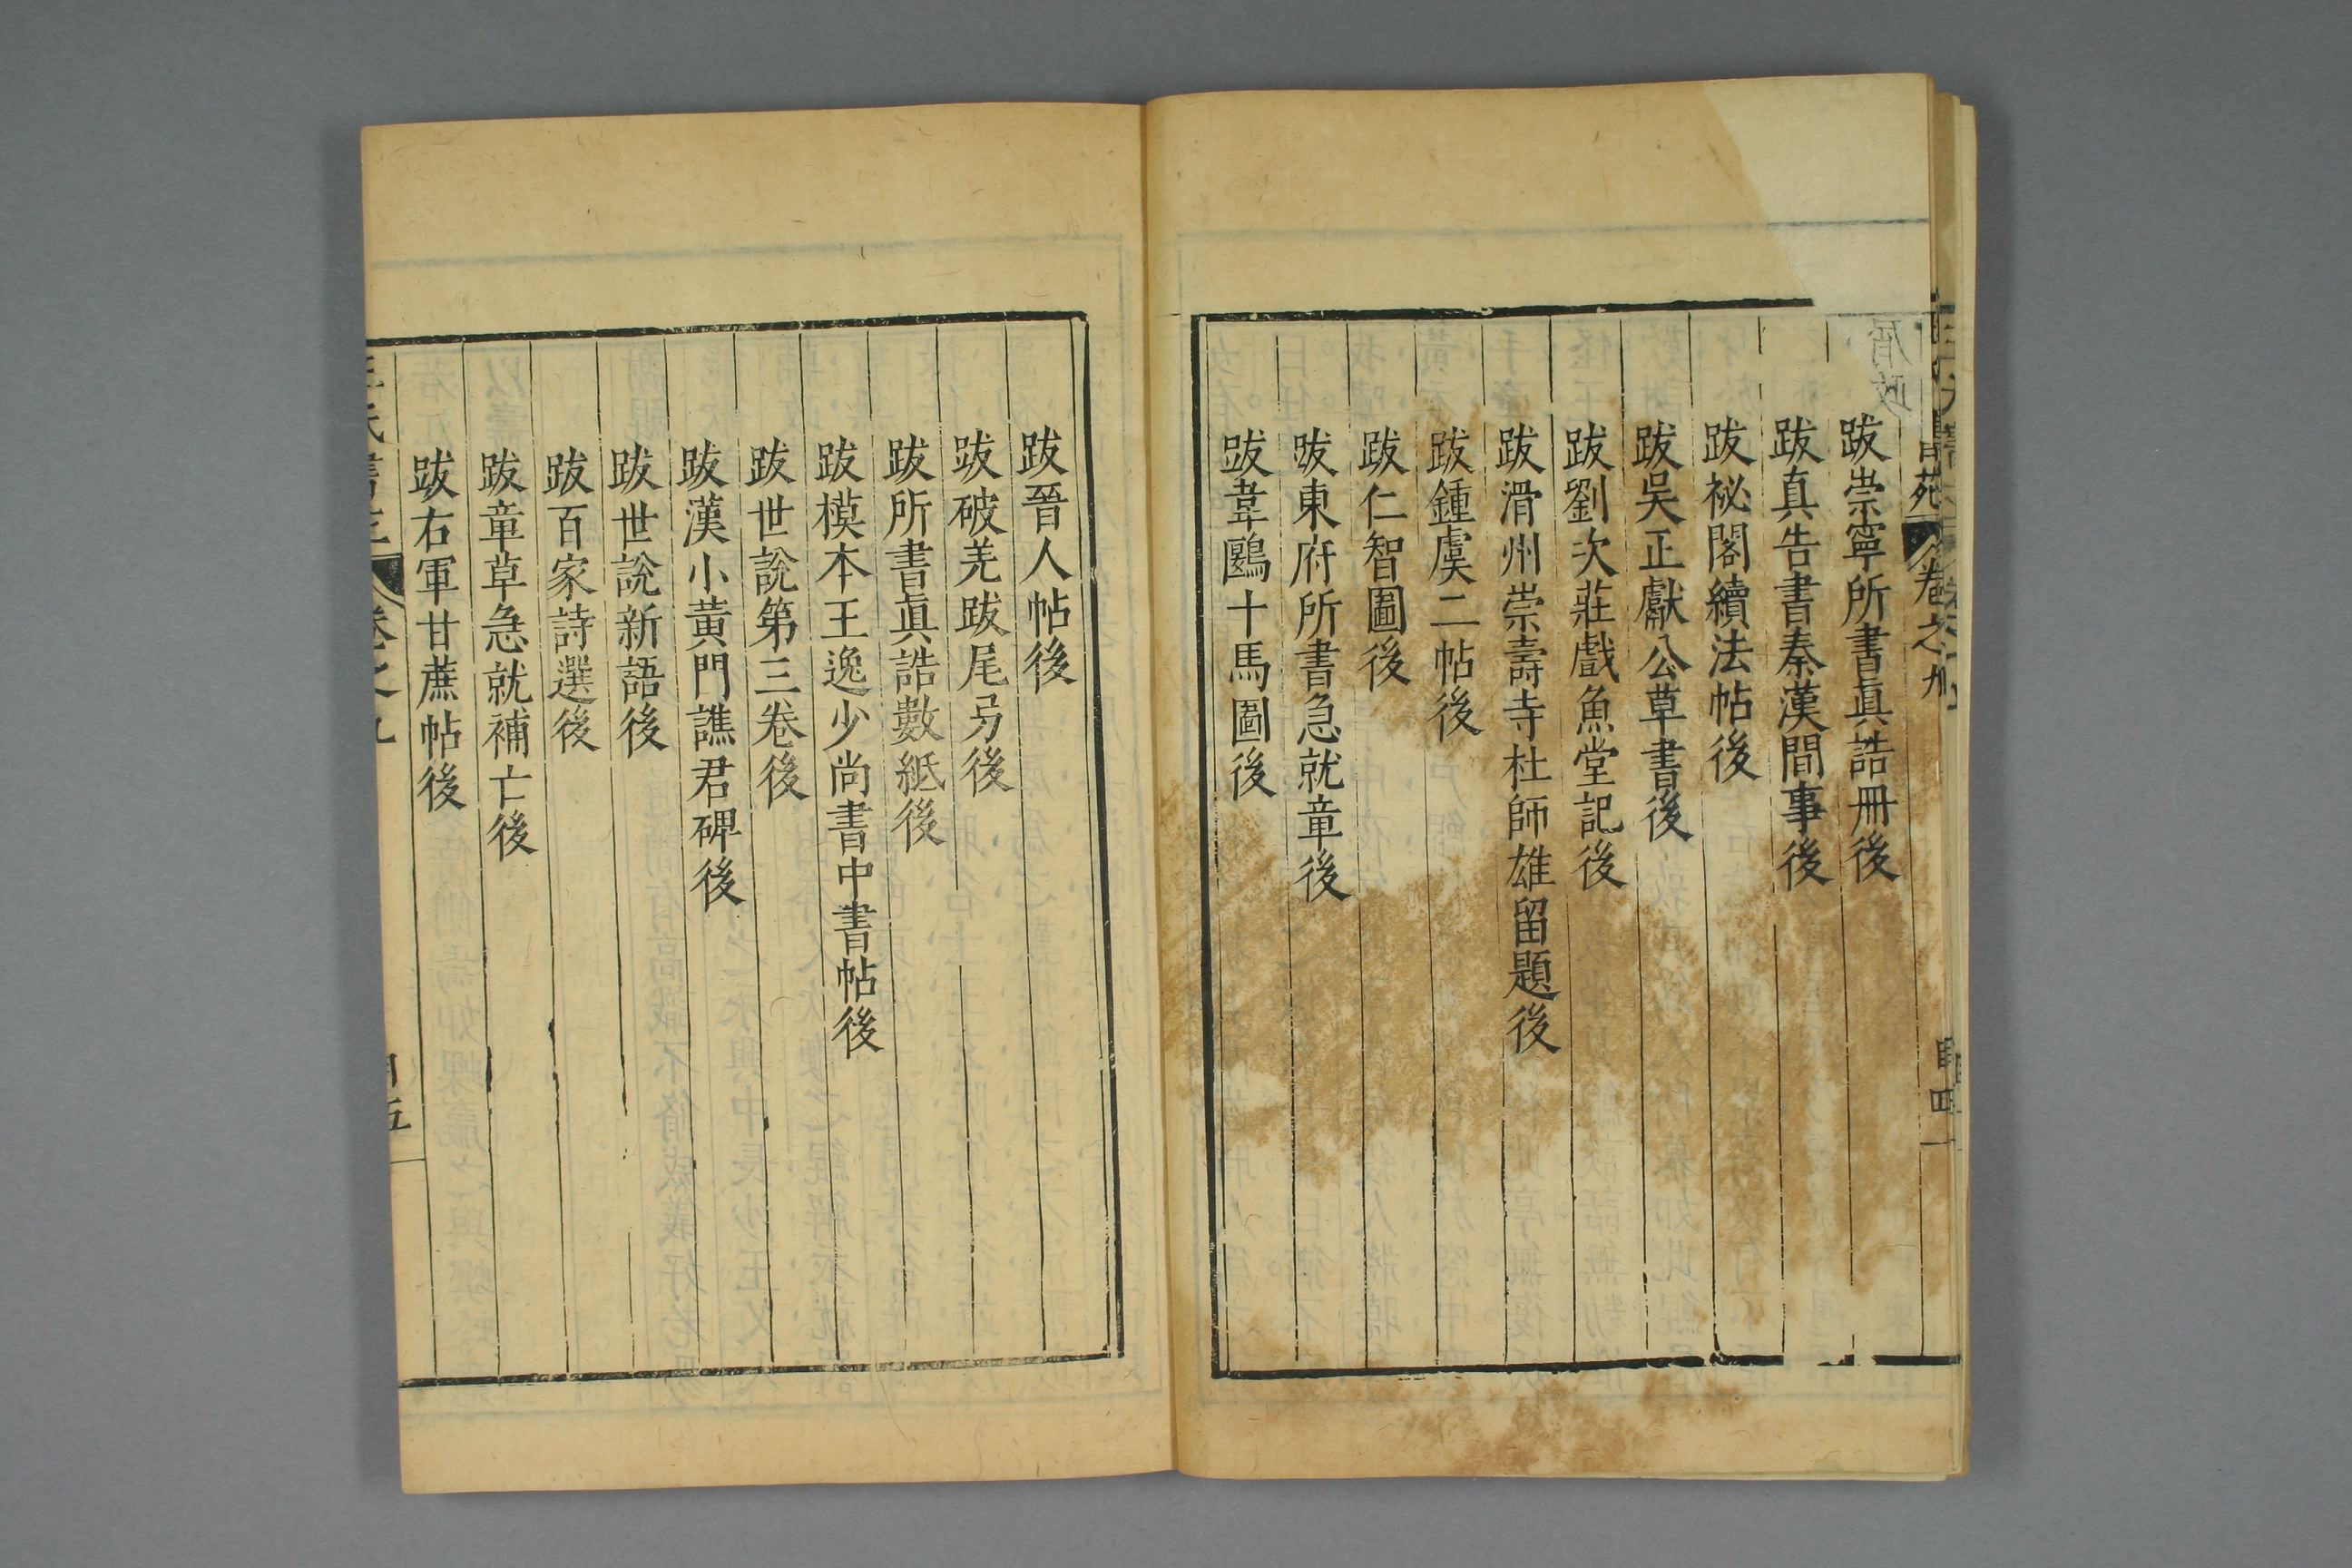 跋崇寧所書眞誥冊後
跋真告書秦漢間事後
跋祕閣續法帖後
跋吳正獻公草書後
跋劉次莊戲魚堂記後
跋滑州崇壽寺杜師雄留題後
跋鍾虞二帖後
跋仁智圖後
跋東府所書急就章後
跋韋鷗十馬圖後
跋晉人帖後
跋破羌跋尾后後
跋所書眞誥數紙後
跋模本王逸少尚書中書帖後
跋世說第三卷後
跋漢小黃門譙君碑後
跋世說新語後
跋百家詩選後
跋章草急就補亡後
跋右軍甘蔗帖後
卷之九